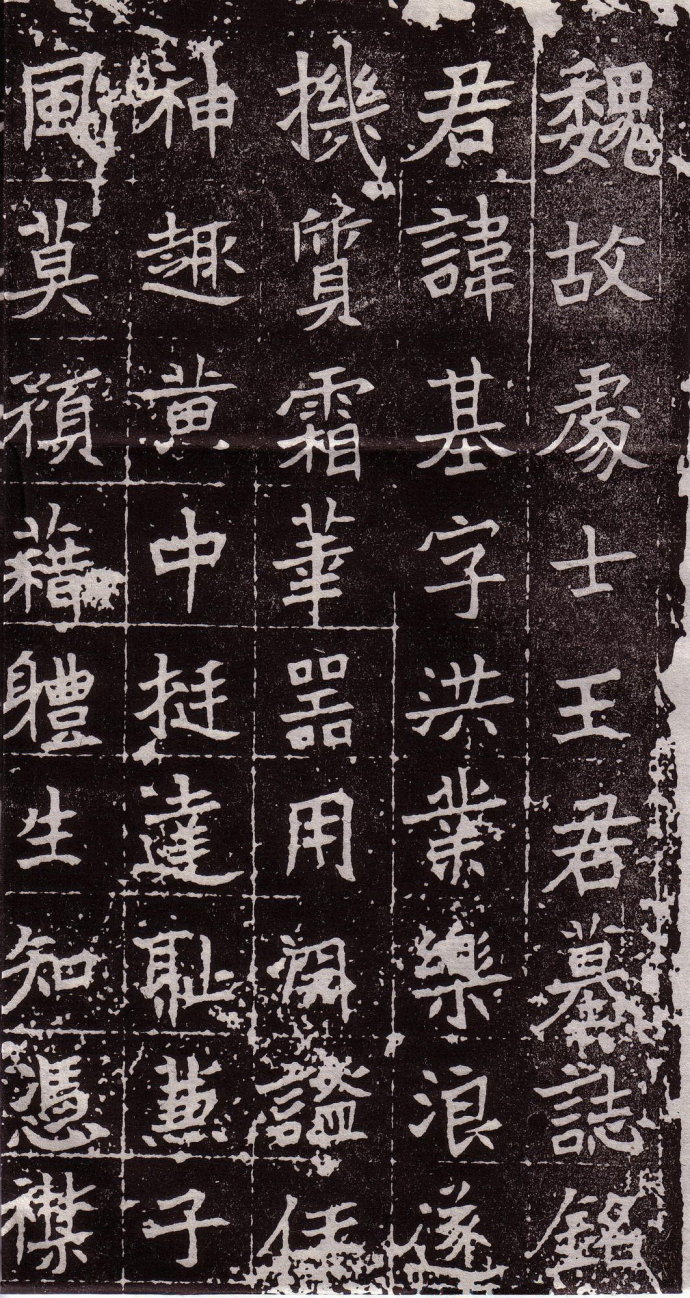 魏故處士王君墓誌銘
君諱基字洪業樂浪遂
機質霜華器用閑謐任
神趣黃中挺達耻蕙子
風莫 藉軆生知憑襟